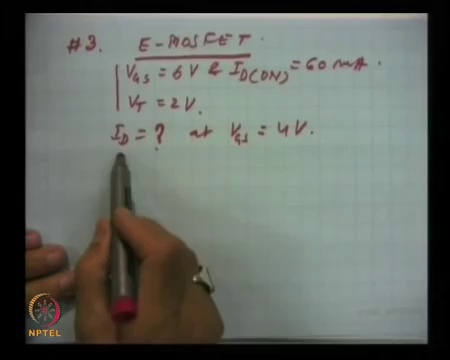 #3. E-MOSFET
V_GS = 6V & I_D(ON) = 60 mA.
V_T = 2V.
I_D = ? at V_GS = 4V.
NPTEL